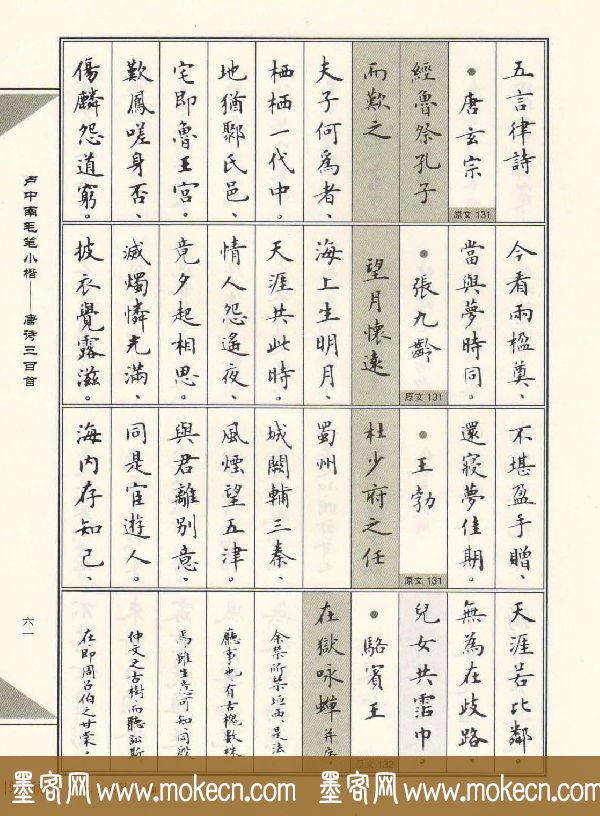 五言律詩
● 唐玄宗
經魯祭孔子
原文 131
而歎之
夫子何爲者、
栖栖一代中。
地猶鄹氏邑、
宅即魯王宮。
歎鳳嗟身否、
傷麟怨道窮。
今看兩楹奠、
當與夢時同。
● 張九齡
原文 131
望月懷遠
海上生明月、
天涯共此時。
情人怨遙夜、
竟夕起相思。
滅燭憐光滿、
披衣覺露滋。
不堪盈手贈、
還寢夢佳期。
● 王勃
原文 131
杜少府之任
蜀州
城闕輔三秦、
風煙望五津。
與君離別意、
同是宦遊人。
海內存知己、
天涯若比鄰。
無為在歧路、
兒女共霑巾。
● 駱賓王
原文 132
在獄咏蟬 并序
余禁所禁垣西、是法
廳事也、有古槐數株
焉、雖生意可知、同殷
仲文之古樹、而聽訟斯
在、即周召伯之甘棠。
卢中南毛笔小楷——唐诗三百首
六一
墨客网 www.mokecn.com 墨客网 www.mokecn.com